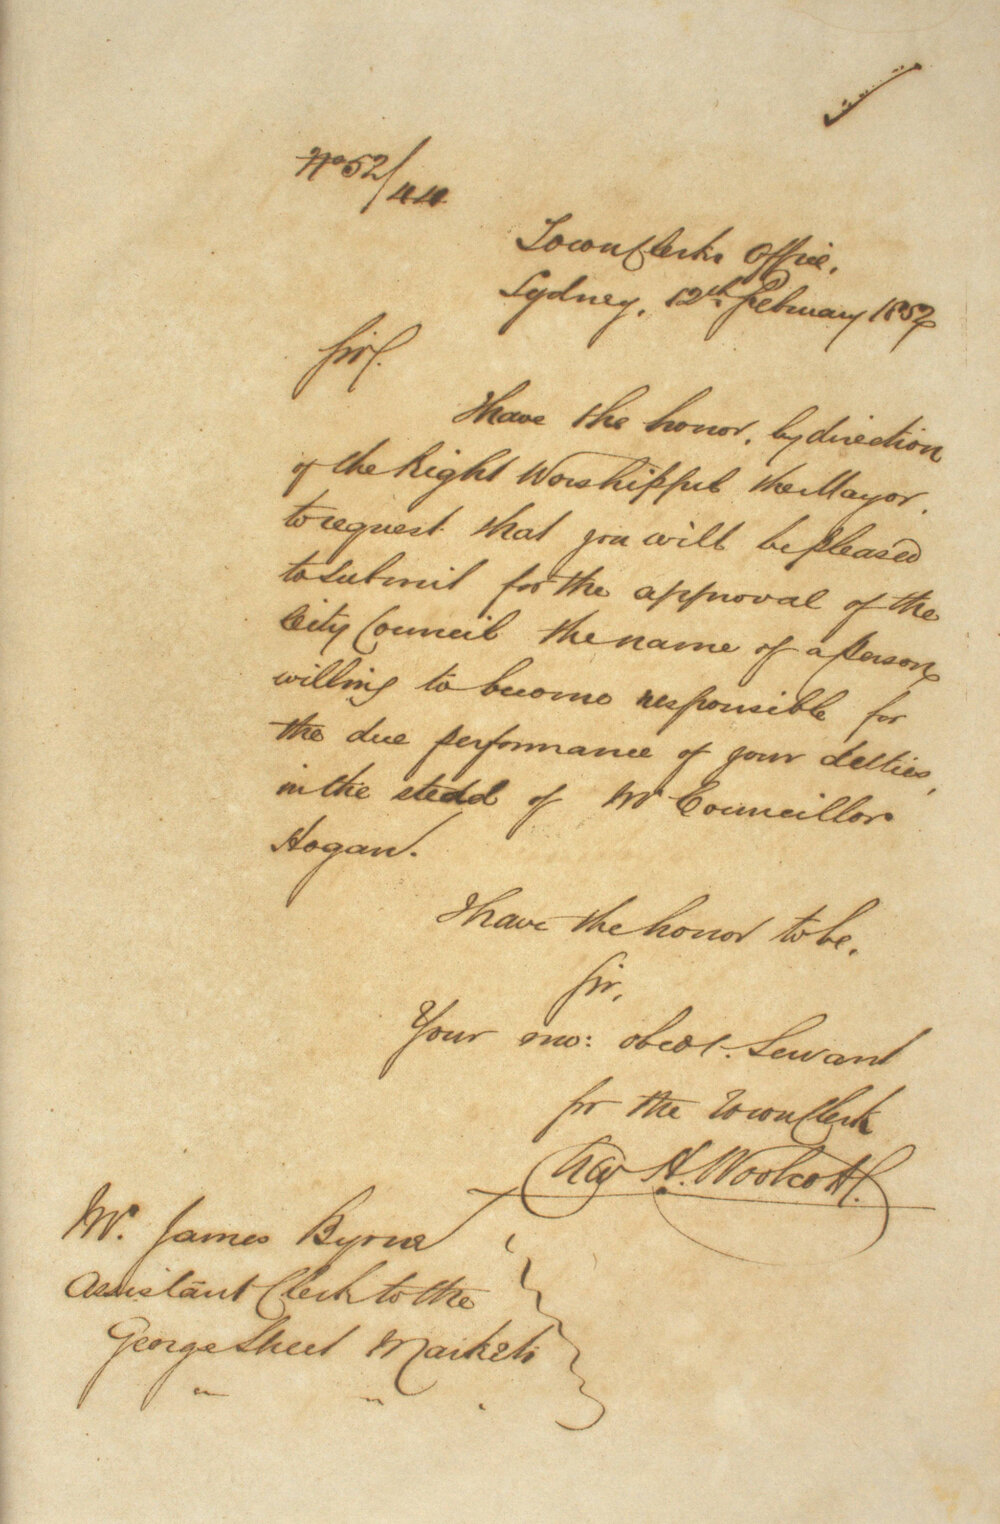 No 52/44
Town Clerks Office,
Sydney, 12th February 1852
Sir,
I have the honor, by direction
of the Right Worshipful the Mayor,
to request that you will be pleased
to submit for the approval of the
City Council the name of a person
willing to become responsible for
the due performance of your duties,
in the stead of Mr Councillor
Hogan.
I have the honor to be,
Sir,
Your mo: obedt. Servant
for the Town Clerk
H. Woolcott.
Mr. James Byrne
Assistant Clerk to the
George Street Markets